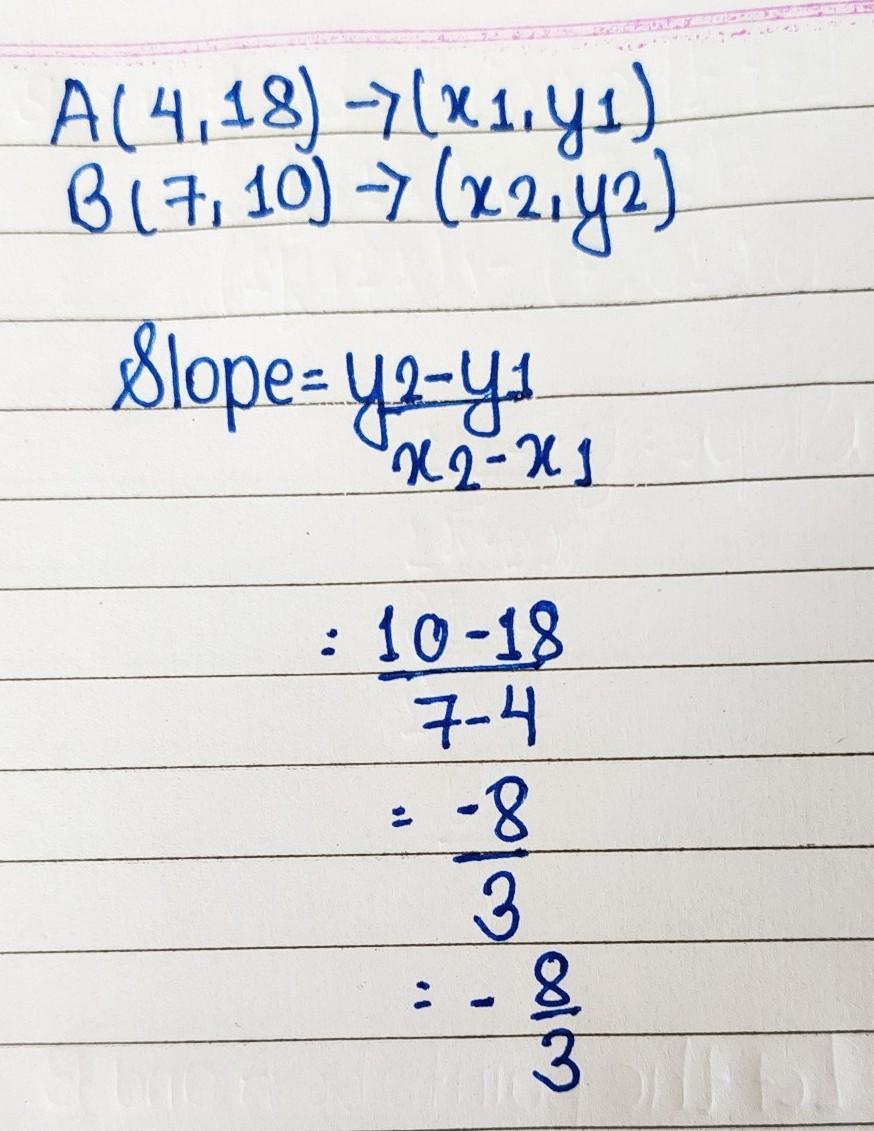 A(4,18) → (x1,y1)
B(7,10) → (x2,y2)
Slope = y2-y1
x2-x1
= 10-18
7-4
= -8
3
= - 8
3